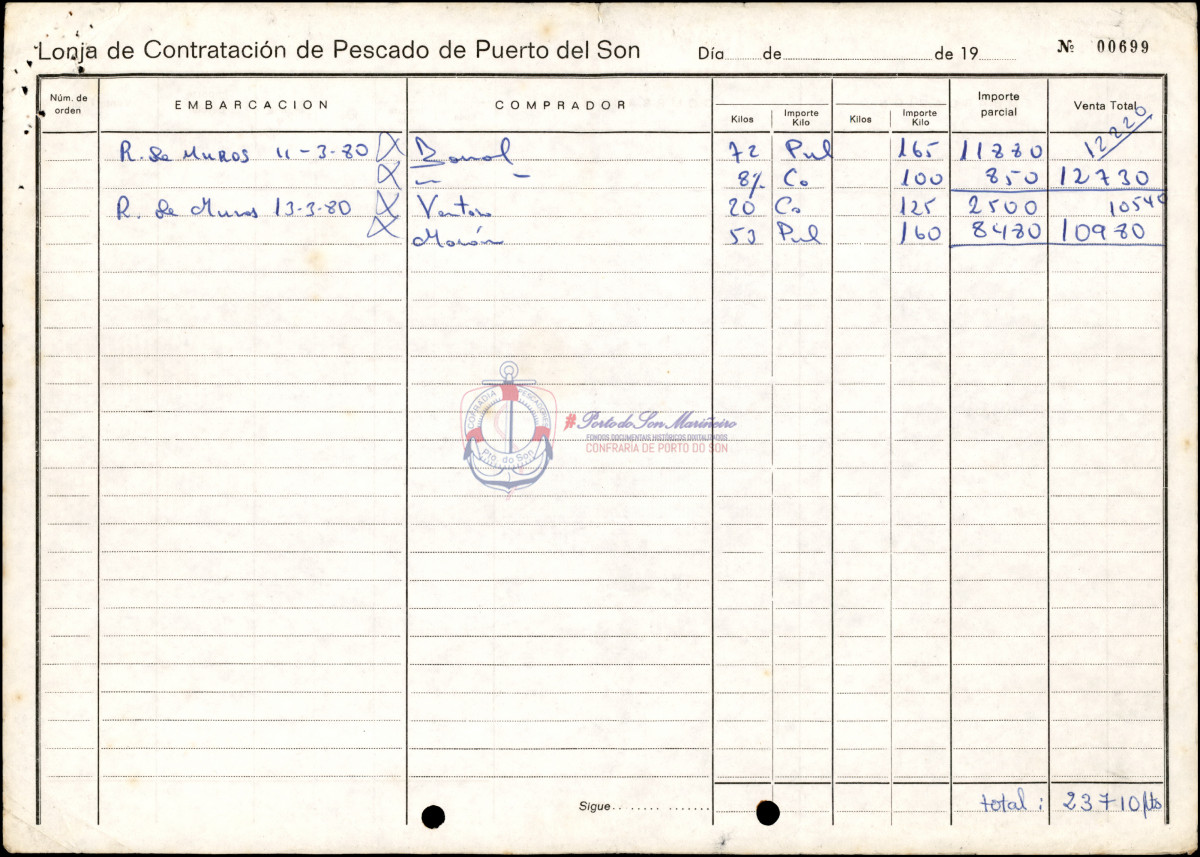 Lonja de Contratación de Pescado de Puerto del Son Día de de 19 Nº 00699
Núm. de orden EMBARCACION COMPRADOR Kilos Importe Kilo Kilos Importe Kilo Importe parcial Venta Total
12220
R. de MUROS 11-3-80 72 Pul 165 11880
" - 8½ Co 100 850 12730
R. de Muros 13-3-80 20 Co 125 2500 10540
53 Pul 160 8480 10980
COFRADIA PESCADORES
Pto. do Son
#Porto do Son Mariñeiro
FONDOS DOCUMENTAIS HISTÓRICOS DIGITALIZADOS
CONFRARIA DE PORTO DO SON
Sigue.. . ...... ....... total: 23710 pts